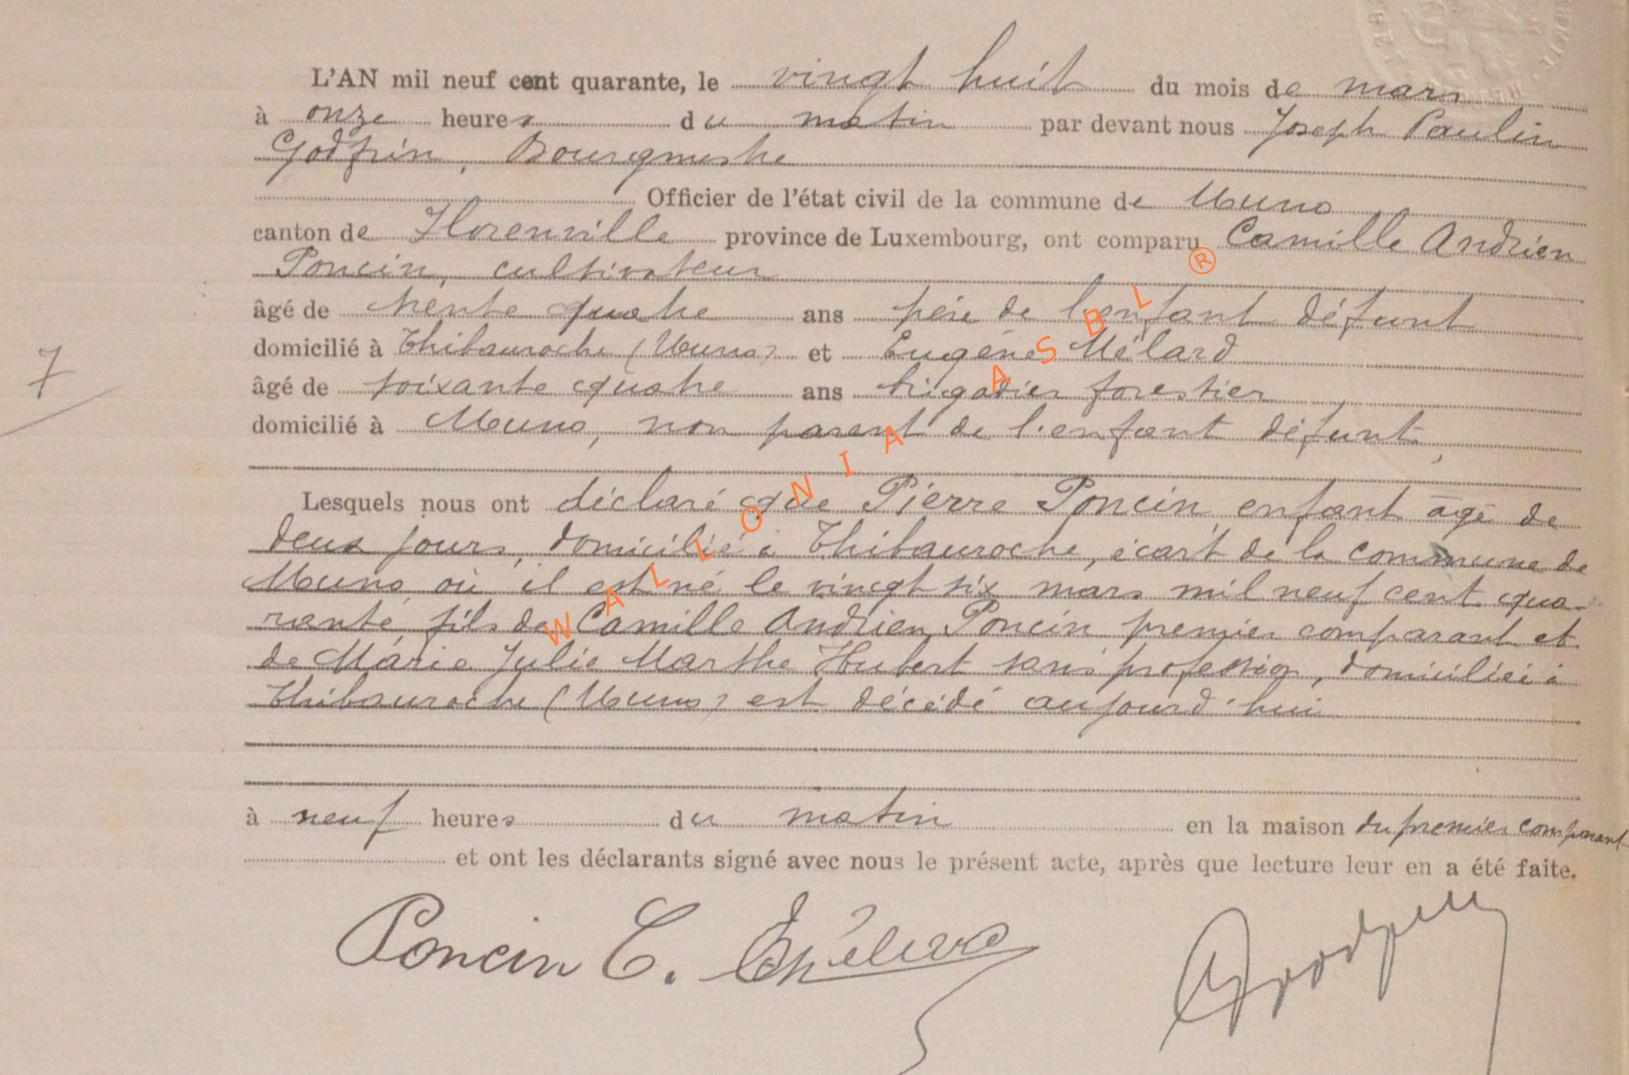 L'AN mil neuf cent quarante, le vingt huit du mois de mars
à onze heures du matin par devant nous Joseph Paulin
Godfrin, Bourgmestre
Officier de l'état civil de la commune de Muno
canton de Florenville province de Luxembourg, ont comparu Camille Andrien
Poncin, cultivateur
âgé de trente quatre ans père de l'enfant défunt
domicilié à Thibauroche (Muno) et Eugène Mélard
7
âgé de soixante quatre ans brigadier forestier
domicilié à Muno, non parent de l'enfant défunt,
Lesquels nous ont déclaré que Pierre Poncin, enfant âgé de
deux jours, domicilié à Thibauroche, écart de la commune de
Muno où il est né le vingt six mars mil neuf cent qua-
rante, fils de Camille Andrien Poncin premier comparant et
de Marie Julie Marthe Hubert sans profession, domiciliée à
Thibauroche (Muno) est décédé aujourd'hui
à neuf heures du matin en la maison du premier comparant
et ont les déclarants signé avec nous le présent acte, après que lecture leur en a été faite.
Poncin C.
WALLONIA ASBL ®